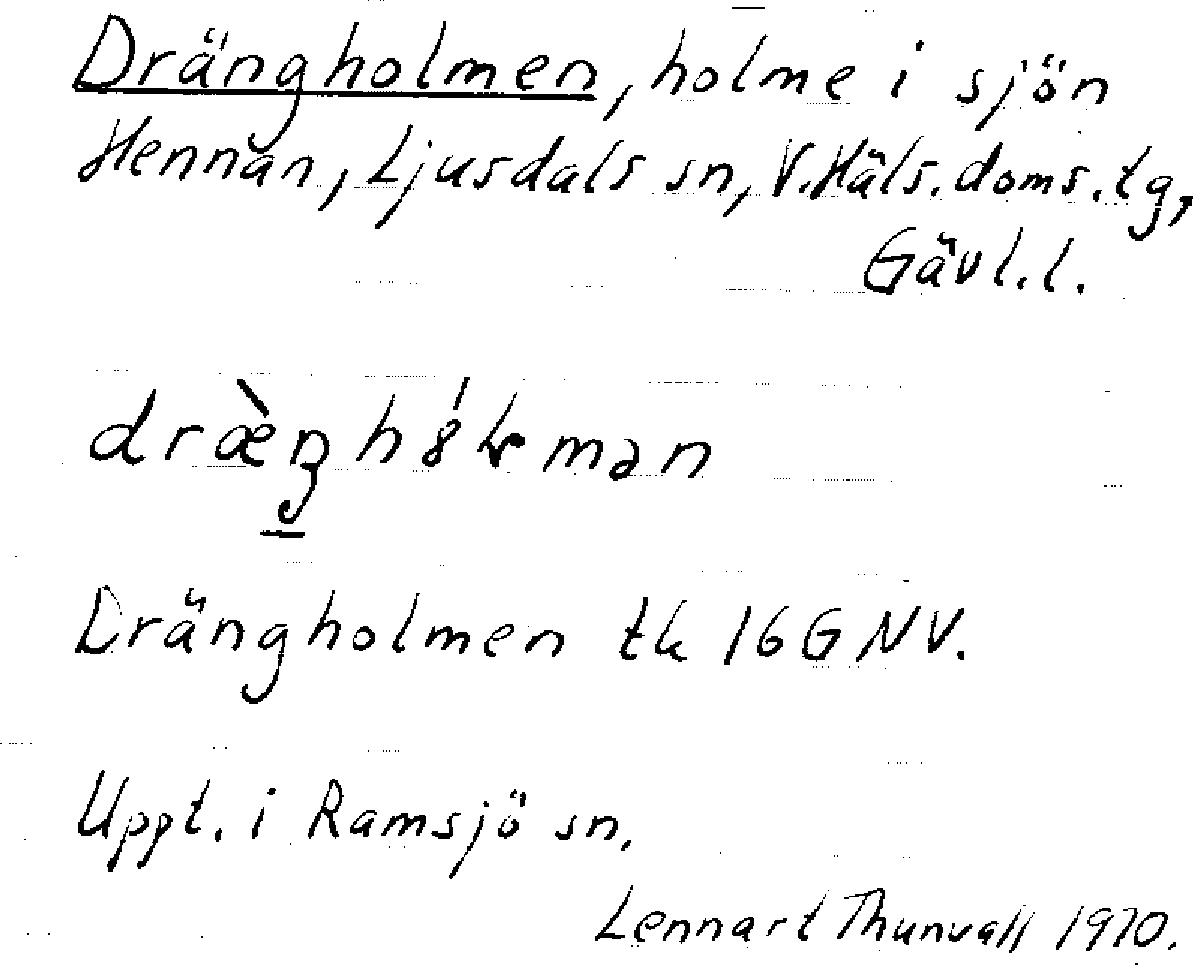 Drängholmen, holme i sjön
Hennan, Ljusdals sn, V. Häls. doms. tg,
Gävl. l.
Drängholmen tk 16G NV.
Uppt. i Ramsjö sn.
Lennart Thunvall 1970.